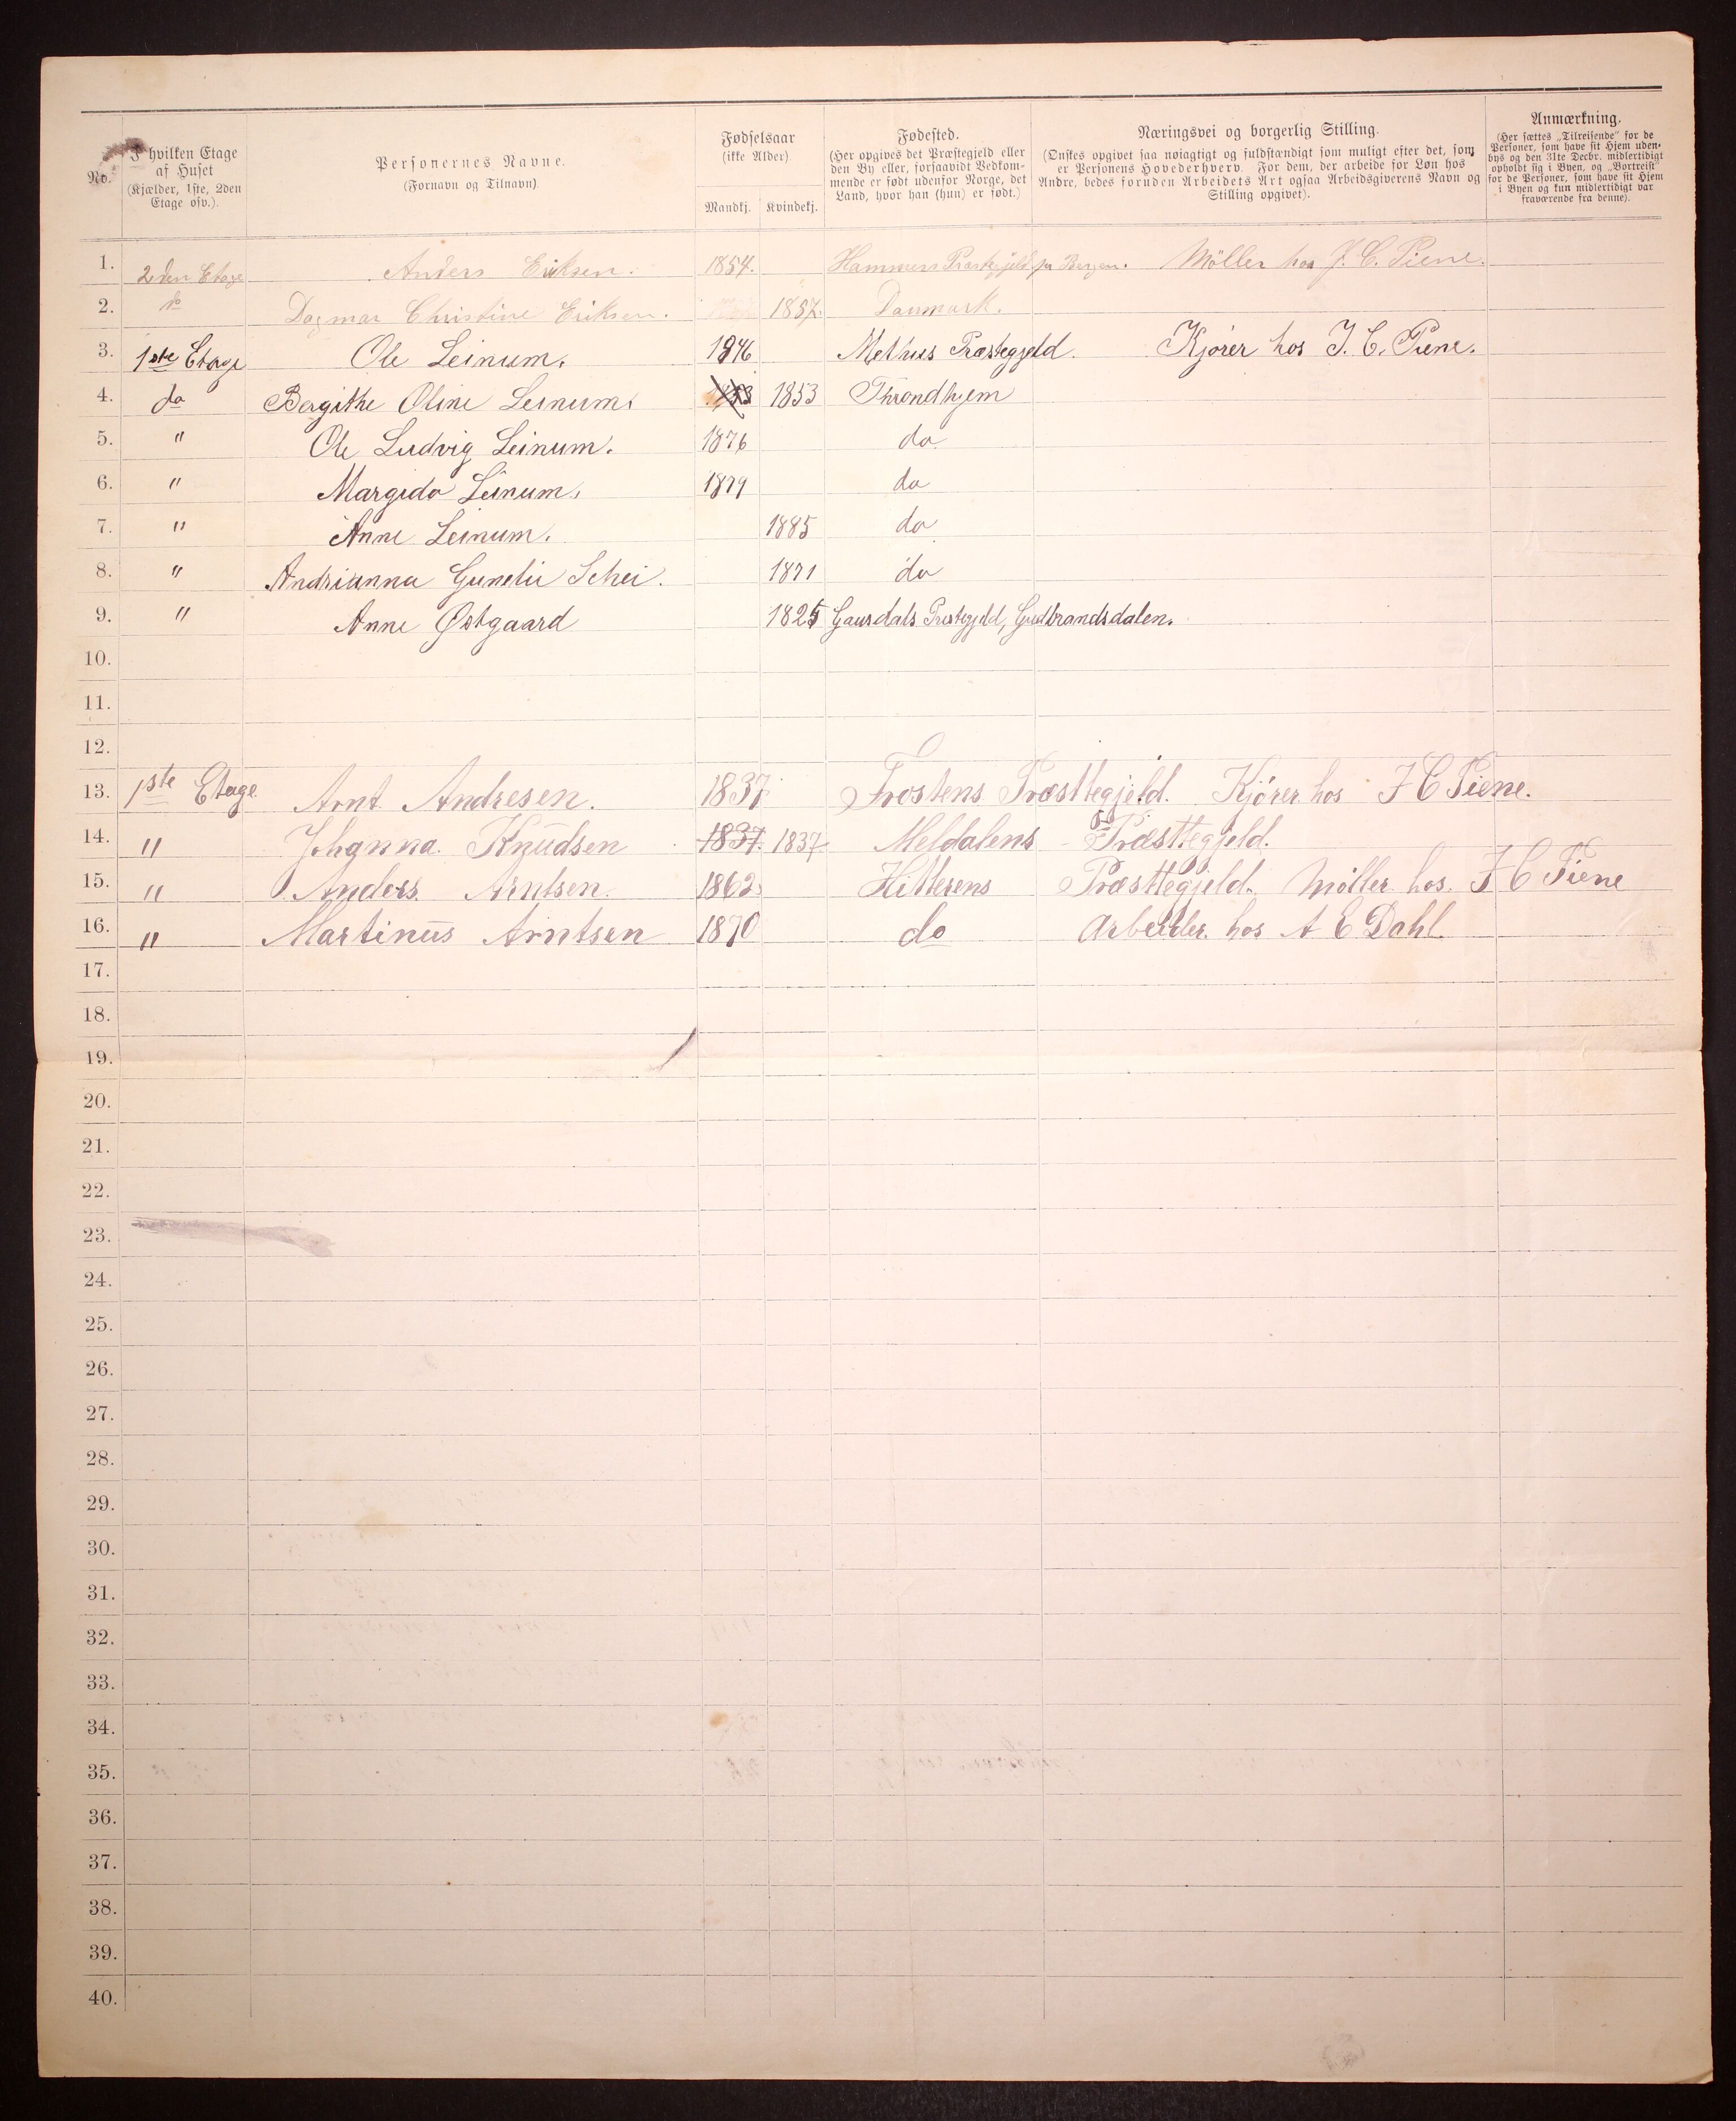 No.
I hvilken Etage
af Huset
(Kjælder, 1ste, 2den
Etage osv.).
Personernes Navne.
(Fornavn og Tilnavn)
Fødselsaar
(ikke Alder)
Mandkj. Kvindekj.
Fødested.
(Her opgives det Præstegjeld eller
den By eller, forsaavidt Vedkom-
mende er født udenfor Norge, det
Land, hvor han (hun) er født.)
Næringsvei og borgerlig Stilling.
(Ønskes opgivet saa nøiagtigt og fuldstændigt som muligt efter det, som
er Personens Hovederhverv. For dem, der arbeide for Løn hos
Andre, bedes foruden Arbeidets Art ogsaa Arbeidsgiverens Navn og
Stilling opgivet).
Anmærkning.
(Her sættes „Tilreisende" for de
Personer, som have sit Hjem uden-
bys og den 31te Decbr. midlertidigt
opholdt sig i Byen, og „Bortreist"
for de Personer, som have sit Hjem
i Byen og kun midlertidigt var
fraværende fra denne).
1. 2den Etage Anders Eriksen. 1854. Hammers Præstegjeld pr Bergen. Møller hos J. C. Piene.
2. do Dagmar Christine Eriksen. 1857. Danmark.
3. 1ste Etage Ole Leinum. 1846 Melhus Præstegjeld. Kjører hos J. C. Piene.
4. do Bergithe Oline Leinum. 1853 1853 Throndhjem
5. " Ole Ludvig Leinum. 1876 do
6. " Margido Leinum. 1879 do
7. " Anne Leinum. 1885 do
8. " Andrianna Gunelie Schei. 1871 do
9. " Anne Østgaard 1825 Gausdals Præstegjeld, Gudbrandsdalen.
10.
11.
12.
13. 1ste Etage Arnt Andresen. 1837 Frostens Præsttegjeld. Kjører hos J C Piene.
14. " Johanna Knudsen 1837. 1837 Meldalens Præsttegjeld.
15. " Anders Arntsen. 1862 Hitterens Præsttegjeld. Møller hos. J C Piene
16. " Martinus Arntsen 1870 do Arbeider hos A E Dahl.
17.
18.
19.
20.
21.
22.
23.
24.
25.
26.
27.
28.
29.
30.
31.
32.
33.
34.
35.
36.
37.
38.
39.
40.